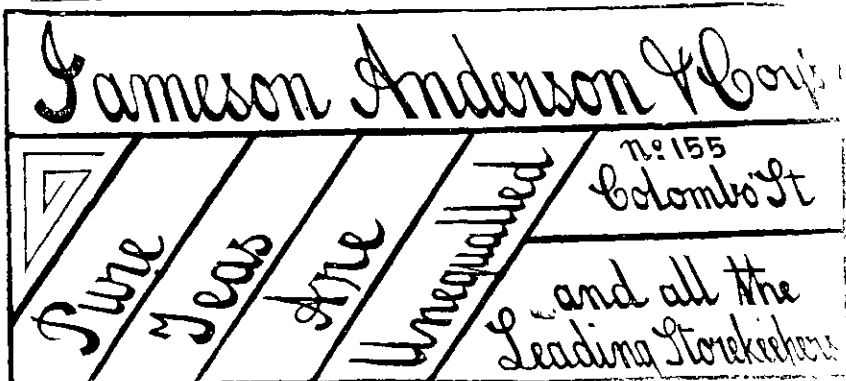 Jameson Anderson & Coy's
Pure
Teas
Are
Unequalled
No 155
Colombo St
and all the
Leading Storekeepers